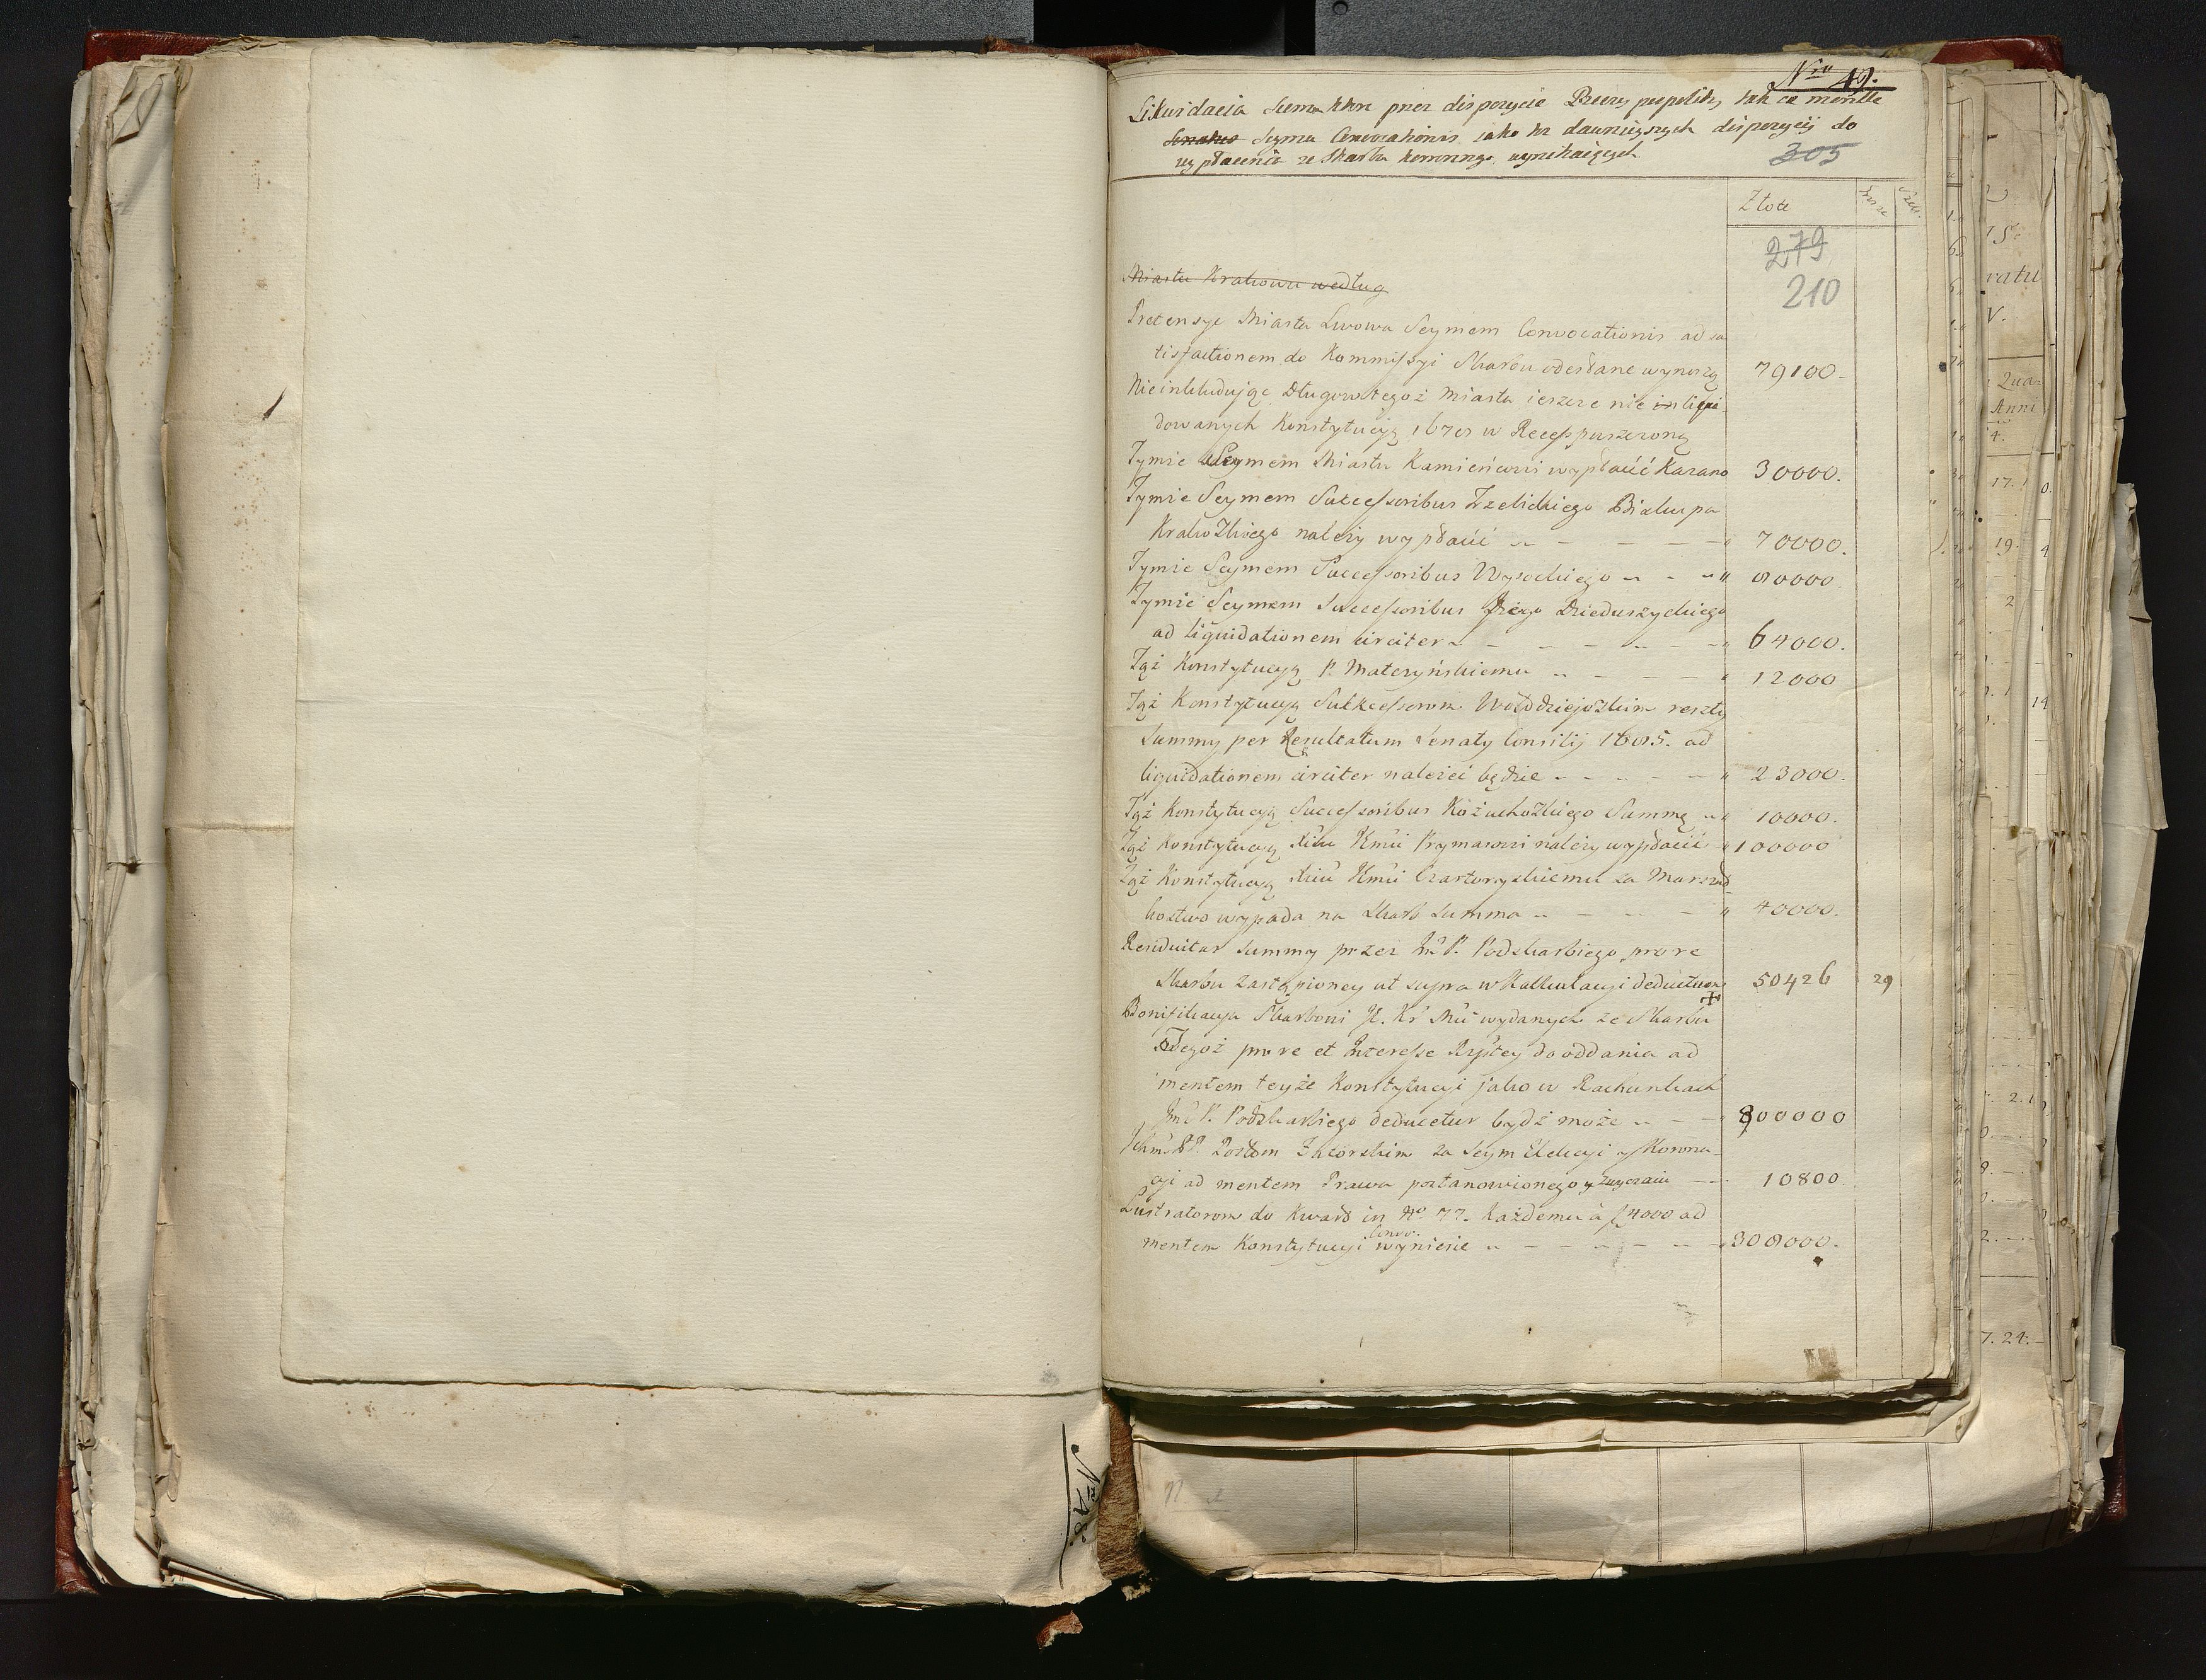 Nro 49.
Likwidacia Summ które przez dispozycie Rzeczy pospolitey tak ex mente
Senatus Seymu Convocationis, iako też dawnieyszych dispozycij do
wypłacenia ze Skarbu koronnego wynikaiących
305
Złote
279
210
Miastu Krakowu według
Pretensye Miasta Lwowa Seymem Convocationis ad sa
tisfactionem do Kommissyi Skarbu odesłane wynoszą 79100-
Nieinkludując Długow tegoż Miasta ieszcze nie inliqui-
dowanych Konstytucyą 1678 w Recess puszczoną
Tymże Seymem Miastu Kamieńcowi wypłacić kazano 30000.
Tymże Seymem Successoribus Trzebickiego Biskupa
Krakowskiego należy wypłacić 70000.
Tymże Seymem Successoribus Wysockiego 80000.
Tymże Seymem Successoribus Dzieduszyckiego
ad liquidationem circiter 64000.
Tąż Konstytucyą P. Matczyńskiemu 12000
Tąż Konstytucyą Sukcessorom Wołodziejoskim reszty
Summy per Resultatum Senatus Consilij 1685. ad
liquidationem circiter należeć będzie 23000.
Tąż Konstytucyą Successoribus Kożuchoskiego Summę 10000.
Tąż Konstytucyą Xciu Jmci Prymasowi należy wypłacić 100000
Tąż Konstytucyą Xciu Jmci Czartoryskiemu za Marszał
kostwo wypada na Skarb Summa 40000.
Residuitas Summy przez Jmć P. Podskarbiego pro re
Skarbu zastąpioney ut supra w Kalkulacyi deductum 50426 29
+
Bonifikacya Skarbowi J. Kr Mci wydanych ze Skarbu
Tegoż pro re et Interesse Rzptey do oddania ad
mentem teyże Konstytucyi jako w Rachunkach
Jmć P. Podskarbiego deducetur bydź może 800000
Ichmć PP. Posłom Zatorskim za Seym Elekcyi y Korona-
cyi ad mentem Prawa postanowionego y zwyczaiu 10800
Lustratorom do Kwart in No 77. każdemu à f 4000 ad
mentem Konstytucyi Conv. wyniesie 308000.
No 48.